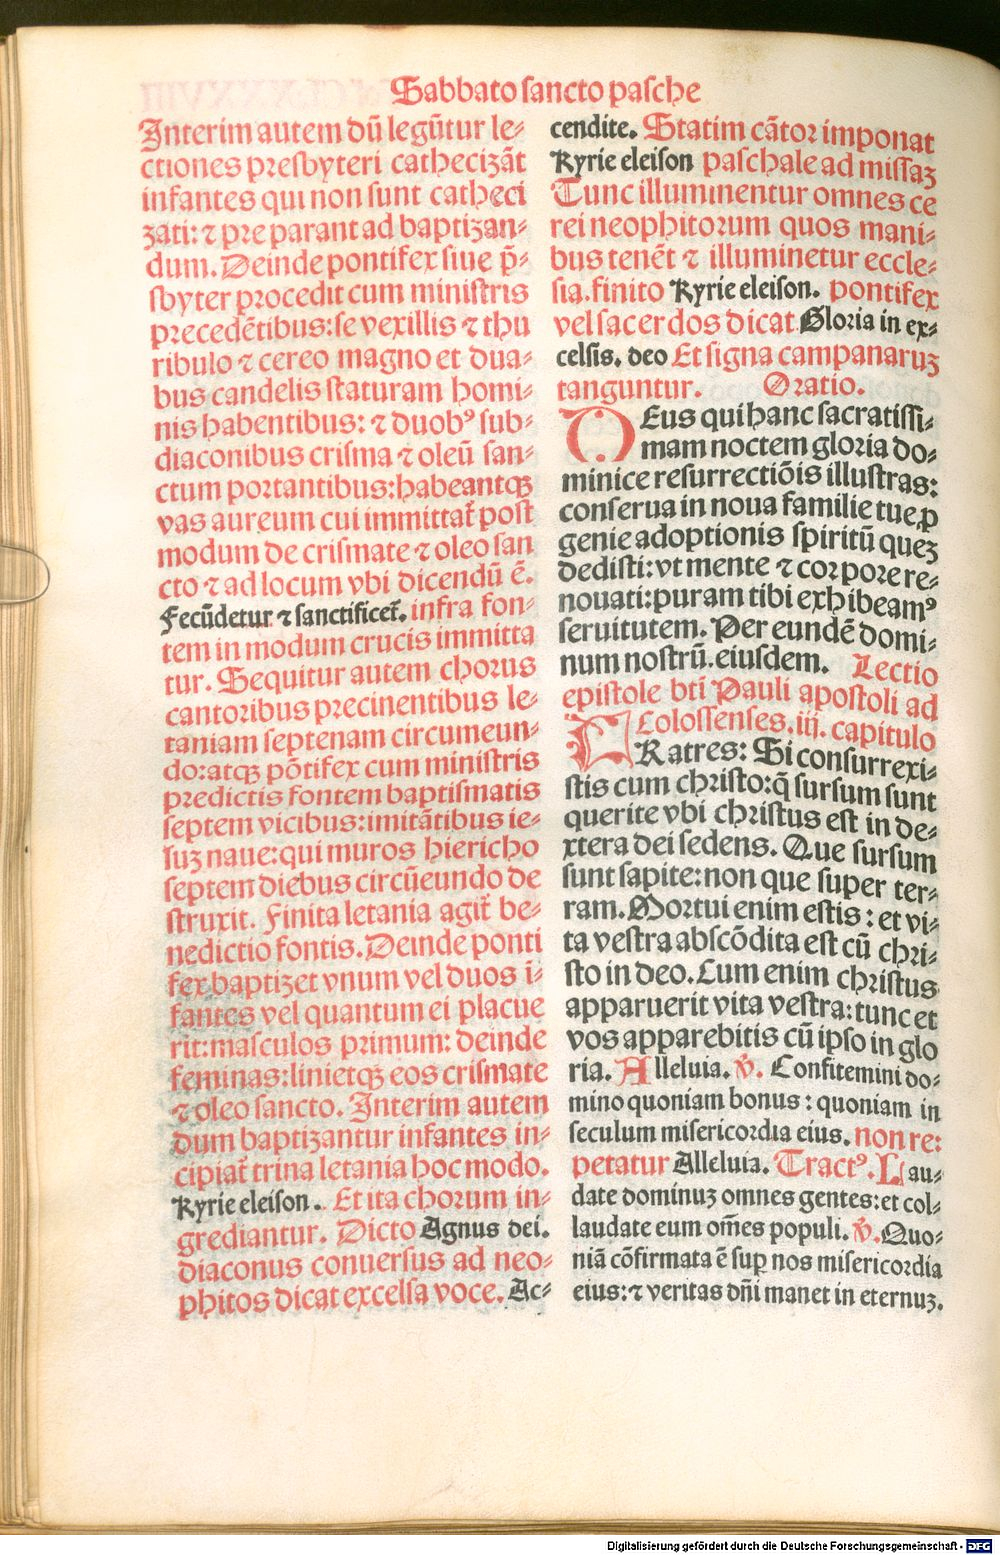 Sabbato sancto pasche
Interim autem dū legūtur le⸗
ctiones presbyteri cathecizāt
infantes qui non sunt catheci
zati: ⁊ pre parant ad baptizan⸗
dum. Deinde pontifex siue p̄⸗
sbyter procedit cum ministris
precedētibus: se vexillis ⁊ thu
ribulo ⁊ cereo magno et dua⸗
bus candelis staturam homi⸗
nis habentibus: ⁊ duobꝰ sub⸗
diaconibus crisma ⁊ oleū san⸗
ctum portantibus: habeantqꝫ
vas aureum cui immittat᷑ post
modum de crismate ⁊ oleo san
cto ⁊ ad locum vbi dicendū ē.
Fecūdetur ⁊ sanctificet᷑. infra fon⸗
tem in modum crucis immitta
tur. Sequitur autem chorus
cantoribus precinentibus le⸗
taniam septenam circumeun⸗
do: atqꝫ pōtifex cum ministris
predictis fontem baptismatis
septem vicibus: imitātibus ie⸗
suꝫ naue: qui muros hiericho
septem diebus circūeundo de
struxit. Finita letania agit᷑ be⸗
nedictio fontis. Deinde ponti
fex baptizet vnum vel duos ī⸗
fantes vel quantum ei placue
rit: masculos primum: deinde
feminas: linietqꝫ eos crismate
⁊ oleo sancto. Interim autem
dum baptizantur infantes in⸗
cipiat᷑ trina letania hoc modo.
Kyrie eleison. Et ita chorum in⸗
grediantur. Dicto Agnus dei.
diaconus conuersus ad neo⸗
phitos dicat excelsa voce. Ac⸗
cendite. Statim cātor imponat
Kyrie eleison paschale ad missaꝫ
Tunc illuminentur omnes ce
rei neophitorum quos mani⸗
bus tenēt ⁊ illuminetur eccle⸗
sia. finito Kyrie eleison. pontifex
vel sacerdos dicat Gloria in ex⸗
celsis. deo Et signa campanaruꝫ
tanguntur. Oratio.
DEus qui hanc sacratissi⸗
mam noctem gloria do⸗
minice resurrectiōis illustras:
conserua in noua familie tue ꝓ
genie adoptionis spiritū queꝫ
dedisti: vt mente ⁊ corpore re⸗
nouati: puram tibi exhibeamꝰ
seruitutem. Per eundē domi⸗
num nostrū. eiusdem. Lectio
epistole bti̅ Pauli apostoli ad
Colossenses. iij. capitulo
FRatres: Si consurrexi⸗
stis cum christo: q̄ sursum sunt
querite vbi christus est in de⸗
xtera dei sedens. Que sursum
sunt sapite: non que super ter⸗
ram. Mortui enim estis: et vi⸗
ta vestra abscōdita est cū chri⸗
sto in deo. Cum enim christus
apparuerit vita vestra: tunc et
vos apparebitis cū ipso in glo
ria. Alleluia. ℣. Confitemini do⸗
mino quoniam bonus: quoniam in
seculum misericordia eius. non re⸗
petatur Alleluia. Tractꝰ. Lau⸗
date dominuꝫ omnes gentes: et col⸗
laudate eum om̄es populi. ℣. Quo⸗
niā cōfirmata ē suꝑ nos misericordia
eius: ⁊ veritas dn̄i manet in eternuꝫ.
Digitalisierung gefördert durch die Deutsche Forschungsgemeinschaft - DFG